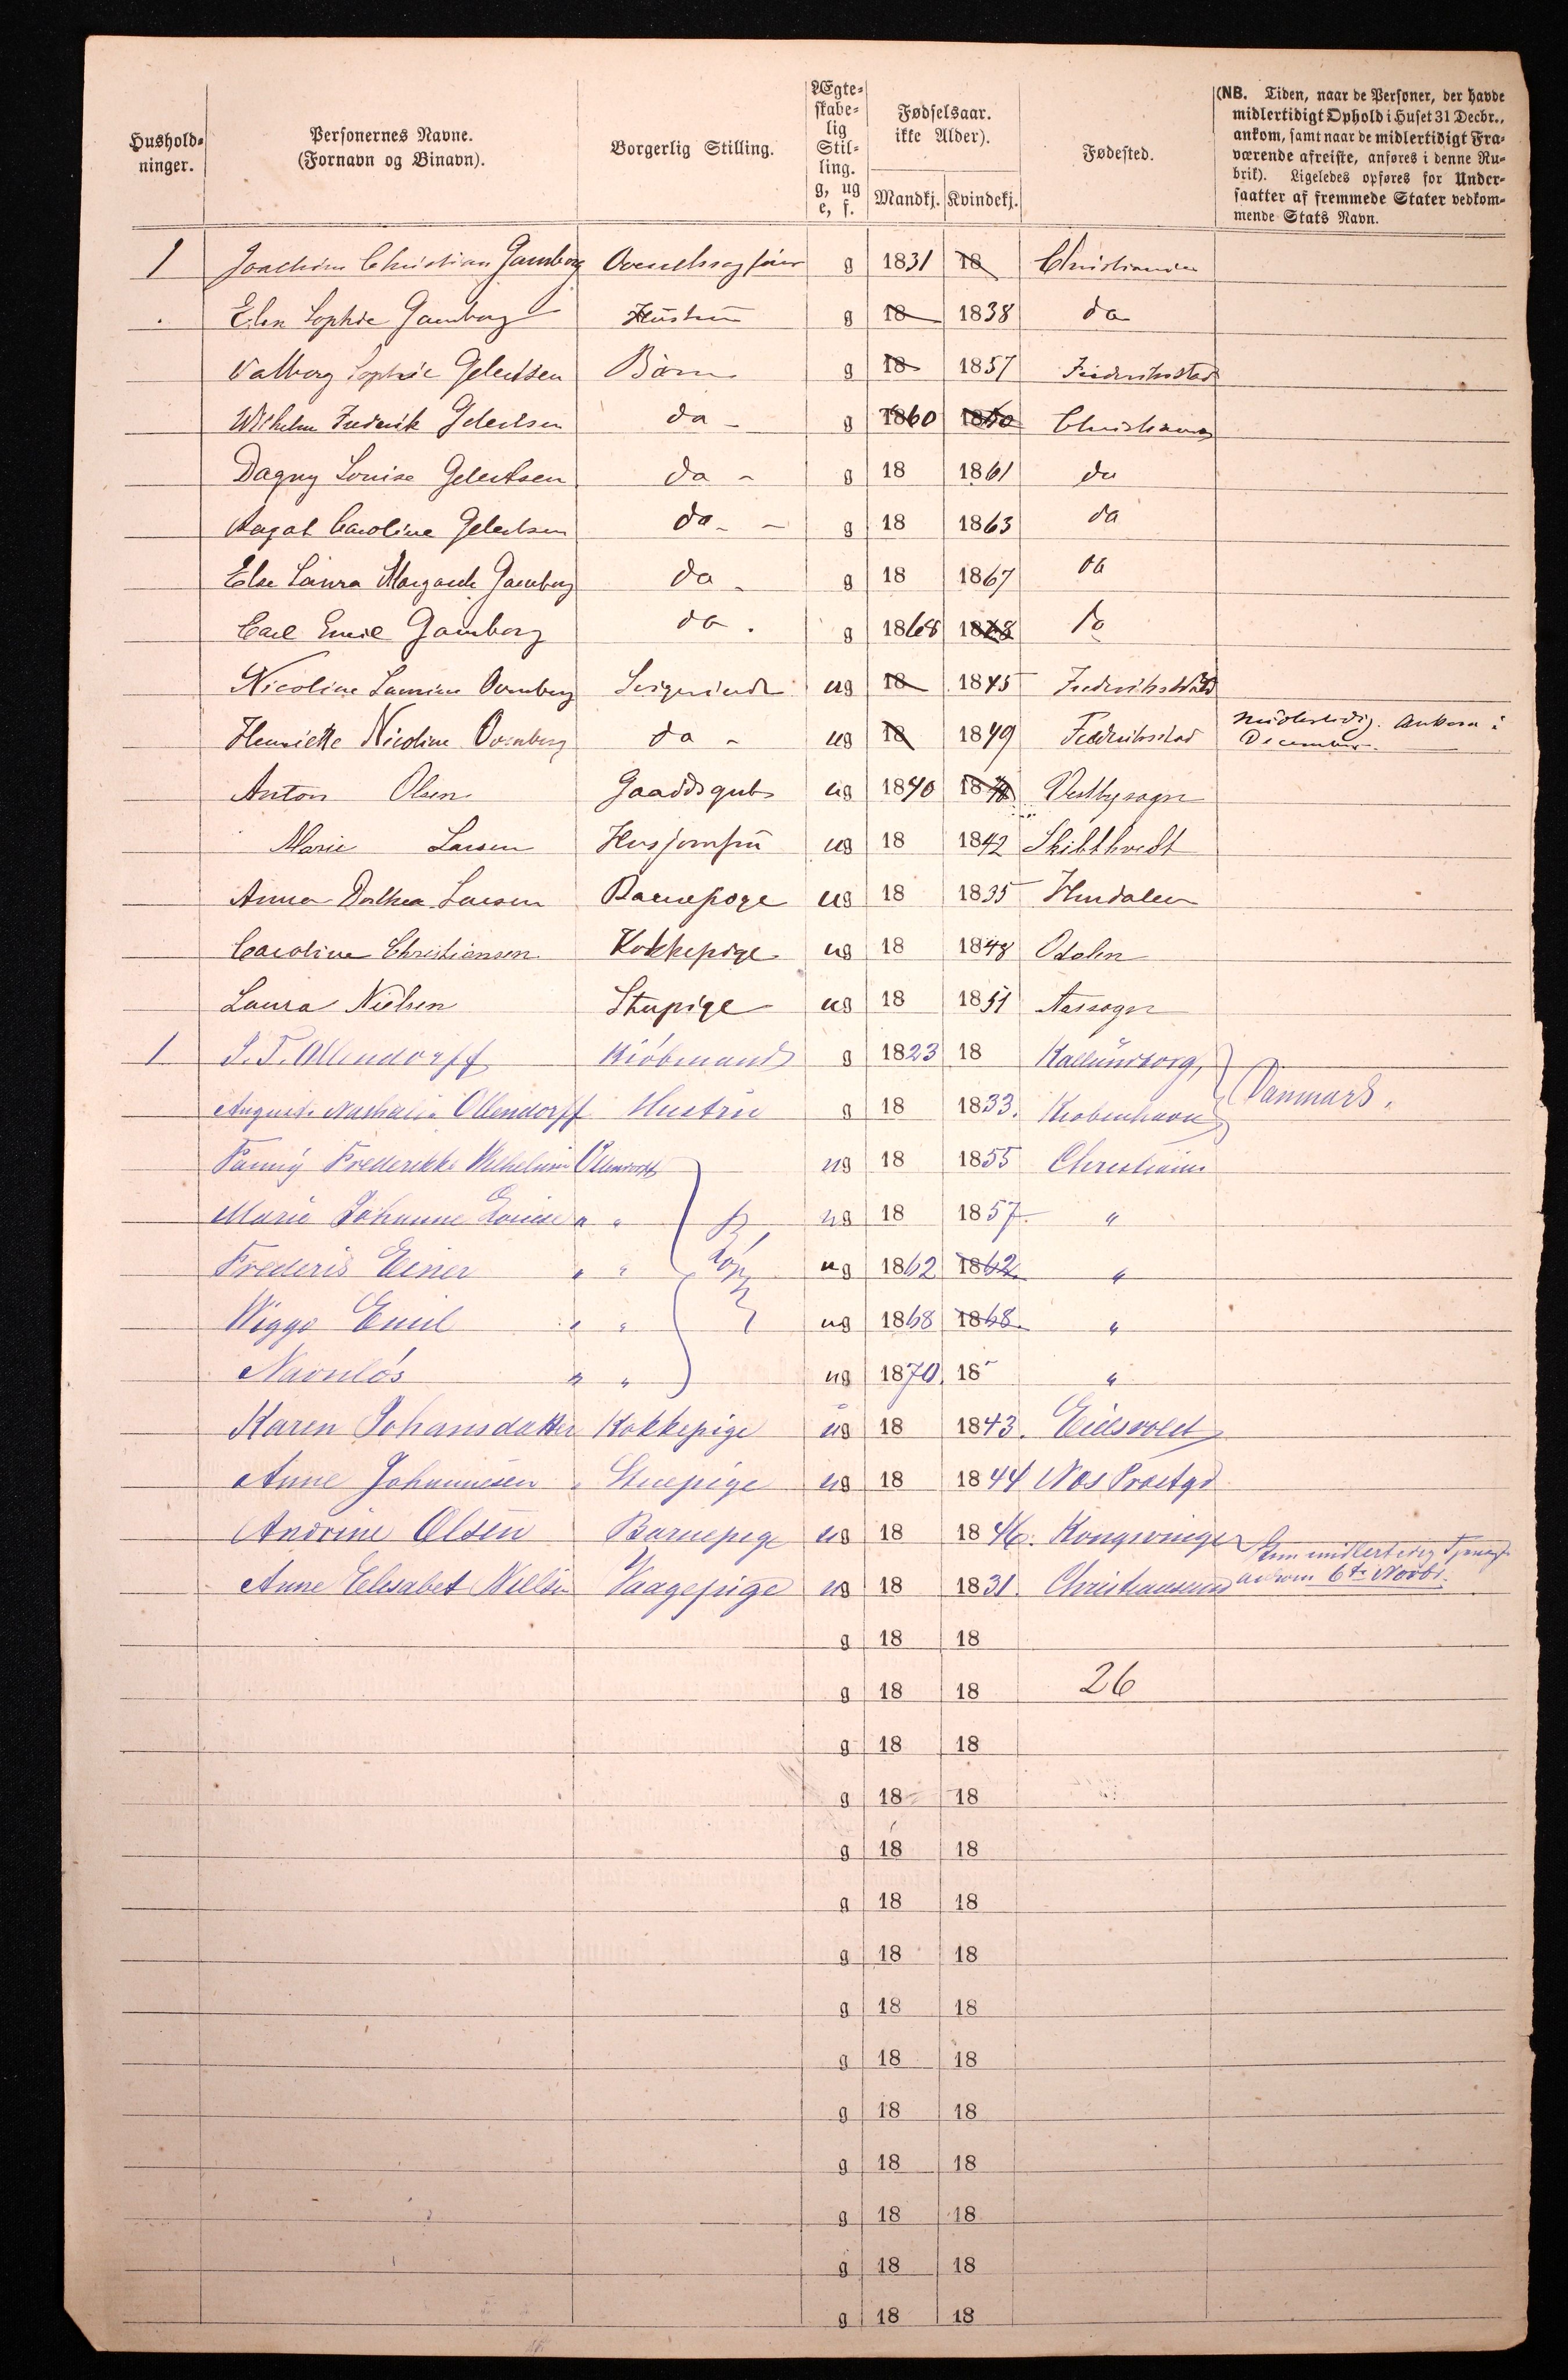 Hushold-
ninger.
Personernes Navne.
(Fornavn og Binavn).
Borgerlig Stilling.
Ægte-
skabe-
lig
Stil-
ling.
g, ug
e, f.
Fødselsaar.
ikke Alder).
Mandkj. Kvindekj.
Fødested.
(NB. Tiden, naar de Personer, der havde
midlertidigt Ophold i Huset 31 Decbr.,
ankom, samt naar de midlertidigt Fra-
værende afreiste, anføres i denne Ru-
brik). Ligeledes opføres for Under-
saatter af fremmede Stater vedkom-
mende Stats Navn.
1 Joachim Christian Gamborg g 1831 18 Christiania
Elen Sophie Gamborg Hustru g 18 1838 da
Valborg Sophie Gelertsen Børn g 18 1857 Frederiksstad
Wilhelm Frederik Gelertsen da - g 1860 1860 Christiania
Dagny Louise Gelertsen da - g 18 1861 da
Aagot Caroline Gelertsen da - - g 18 1863 da
Else Laura Margarete Gamborg da - g 18 1867 da
Carl Emil Gamborg da . g 1868 1868 da
Nicoline Laurine ug 18 1845 Frederiksstad
Henriette Nicoline da - ug 18 1849 Fredriksstad Midlertidig. Ankom i
December.
Anton Olsen Gaardsgut ug 1840 1840 Vestbysogn
Marie Larsen Husjomfru ug 18 1842 Skibthvedt
Anna Dorthea Larsen Barnepige ug 18 1835
Caroline Christiansen. Kokkepige ug 18 1848 Odalen
Laura Nielsen Stuepige ug 18 1851 Aassogn
1 Ollendorff Kiöbmand g 1823 18 Kallundborg,
Danmark.
Auguste Nathalia Ollendorff Hustru g 18 1833. Kiobenhavn
Fanny Frederikke Wilhelmine Ollendorff ug 18 1855 Christiania
Marie Johanne Louise " " ug 18 1857. "
Börn
Frederik Einer " " ug 1862 1862. "
Wiggo Emil " " ug 1868 1868. "
Navnlös " " ug 1870. 18 "
Karen Johansdatter Kokkepige ug 18 1843. Eidsvold
Anne Johannesen Stuepige ug 18 1844 Næs Præstgd
Andrine Olsen Barnepige ug 18 1846. Kongsvinger
midlertidig
Anne Elisabet Nielsen Vaagepige ug 18 1831. Christiansund ankom 6te Novbr.
g 18 18
g 18 18 26
g 18 18
g 18 18
g 18 18
g 18 18
g 18 18
g 18 18
g 18 18
g 18 18
g 18 18
g 18 18
g 18 18
g 18 18